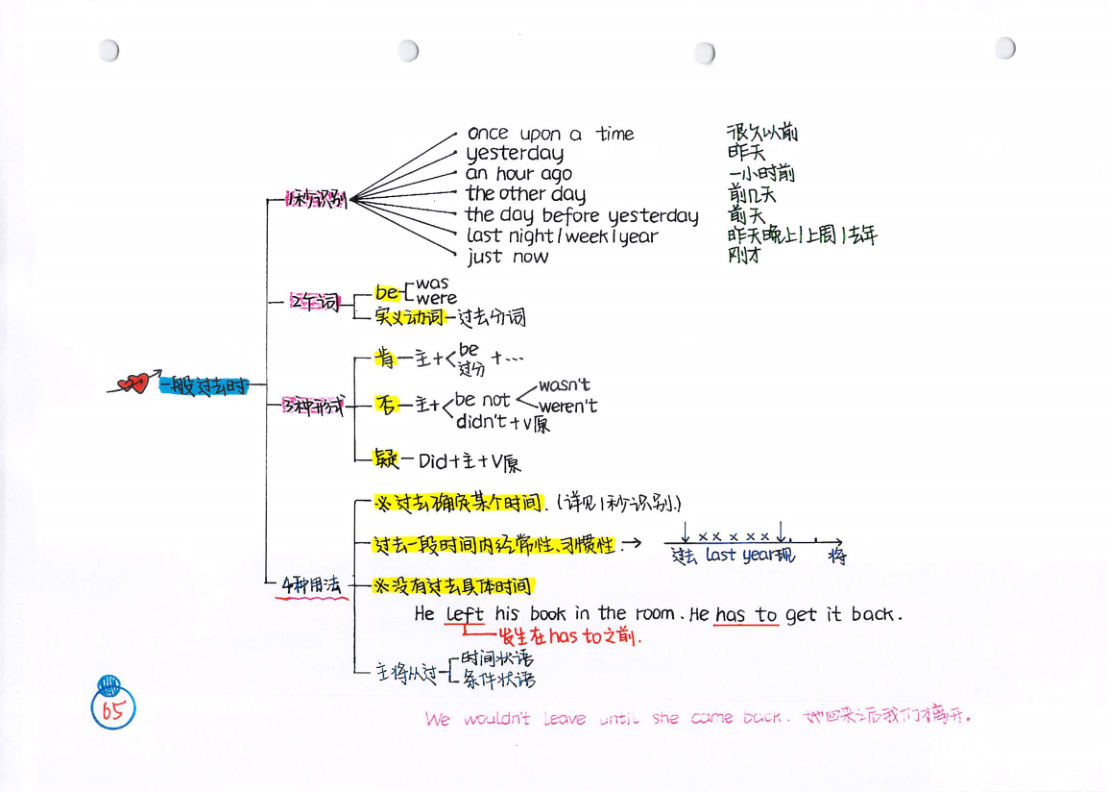 once upon a time 很久以前
yesterday 昨天
an hour ago 一小时前
the other day 前几天
the day before yesterday 前天
last night/week/year 昨天晚上/上周/去年
just now 刚才
1秒识别
2个词
be
was
were
实义动词—过去分词
一般过去时
3种形式
肯—主+<be 过分 +…
否—主+<be not didn't+V原
wasn't
weren't
疑—Did+主+V原
4种用法
※过去确定某个时间.(详见1秒识别.)
过去一段时间内经常性、习惯性.→
××××× 
过去 last year 现 将
※没有过去具体时间
He left his book in the room. He has to get it back.
发生在has to之前.
主将从过
时间状语
条件状语
65
We wouldn't leave until she came back. 她回来之后我们才离开。